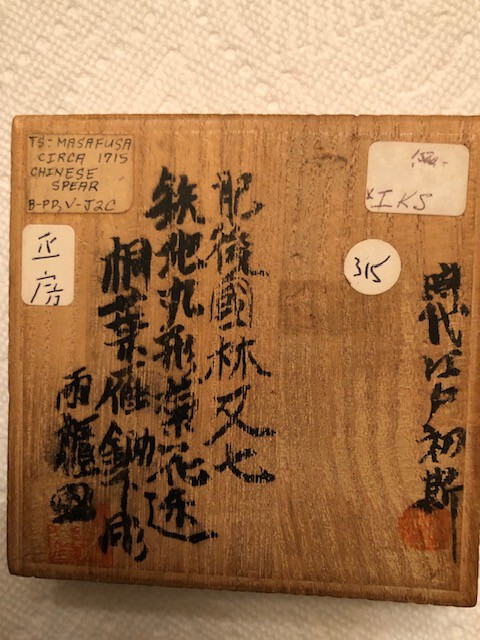 TS-MASAFUSA
CIRCA 1715
CHINESE
SPEAR
B-PD, V-J2C
正房
IKS
315
時代江戸初期
肥後國林又七
鉄地丸形菊花透
桐葉雁
両櫃